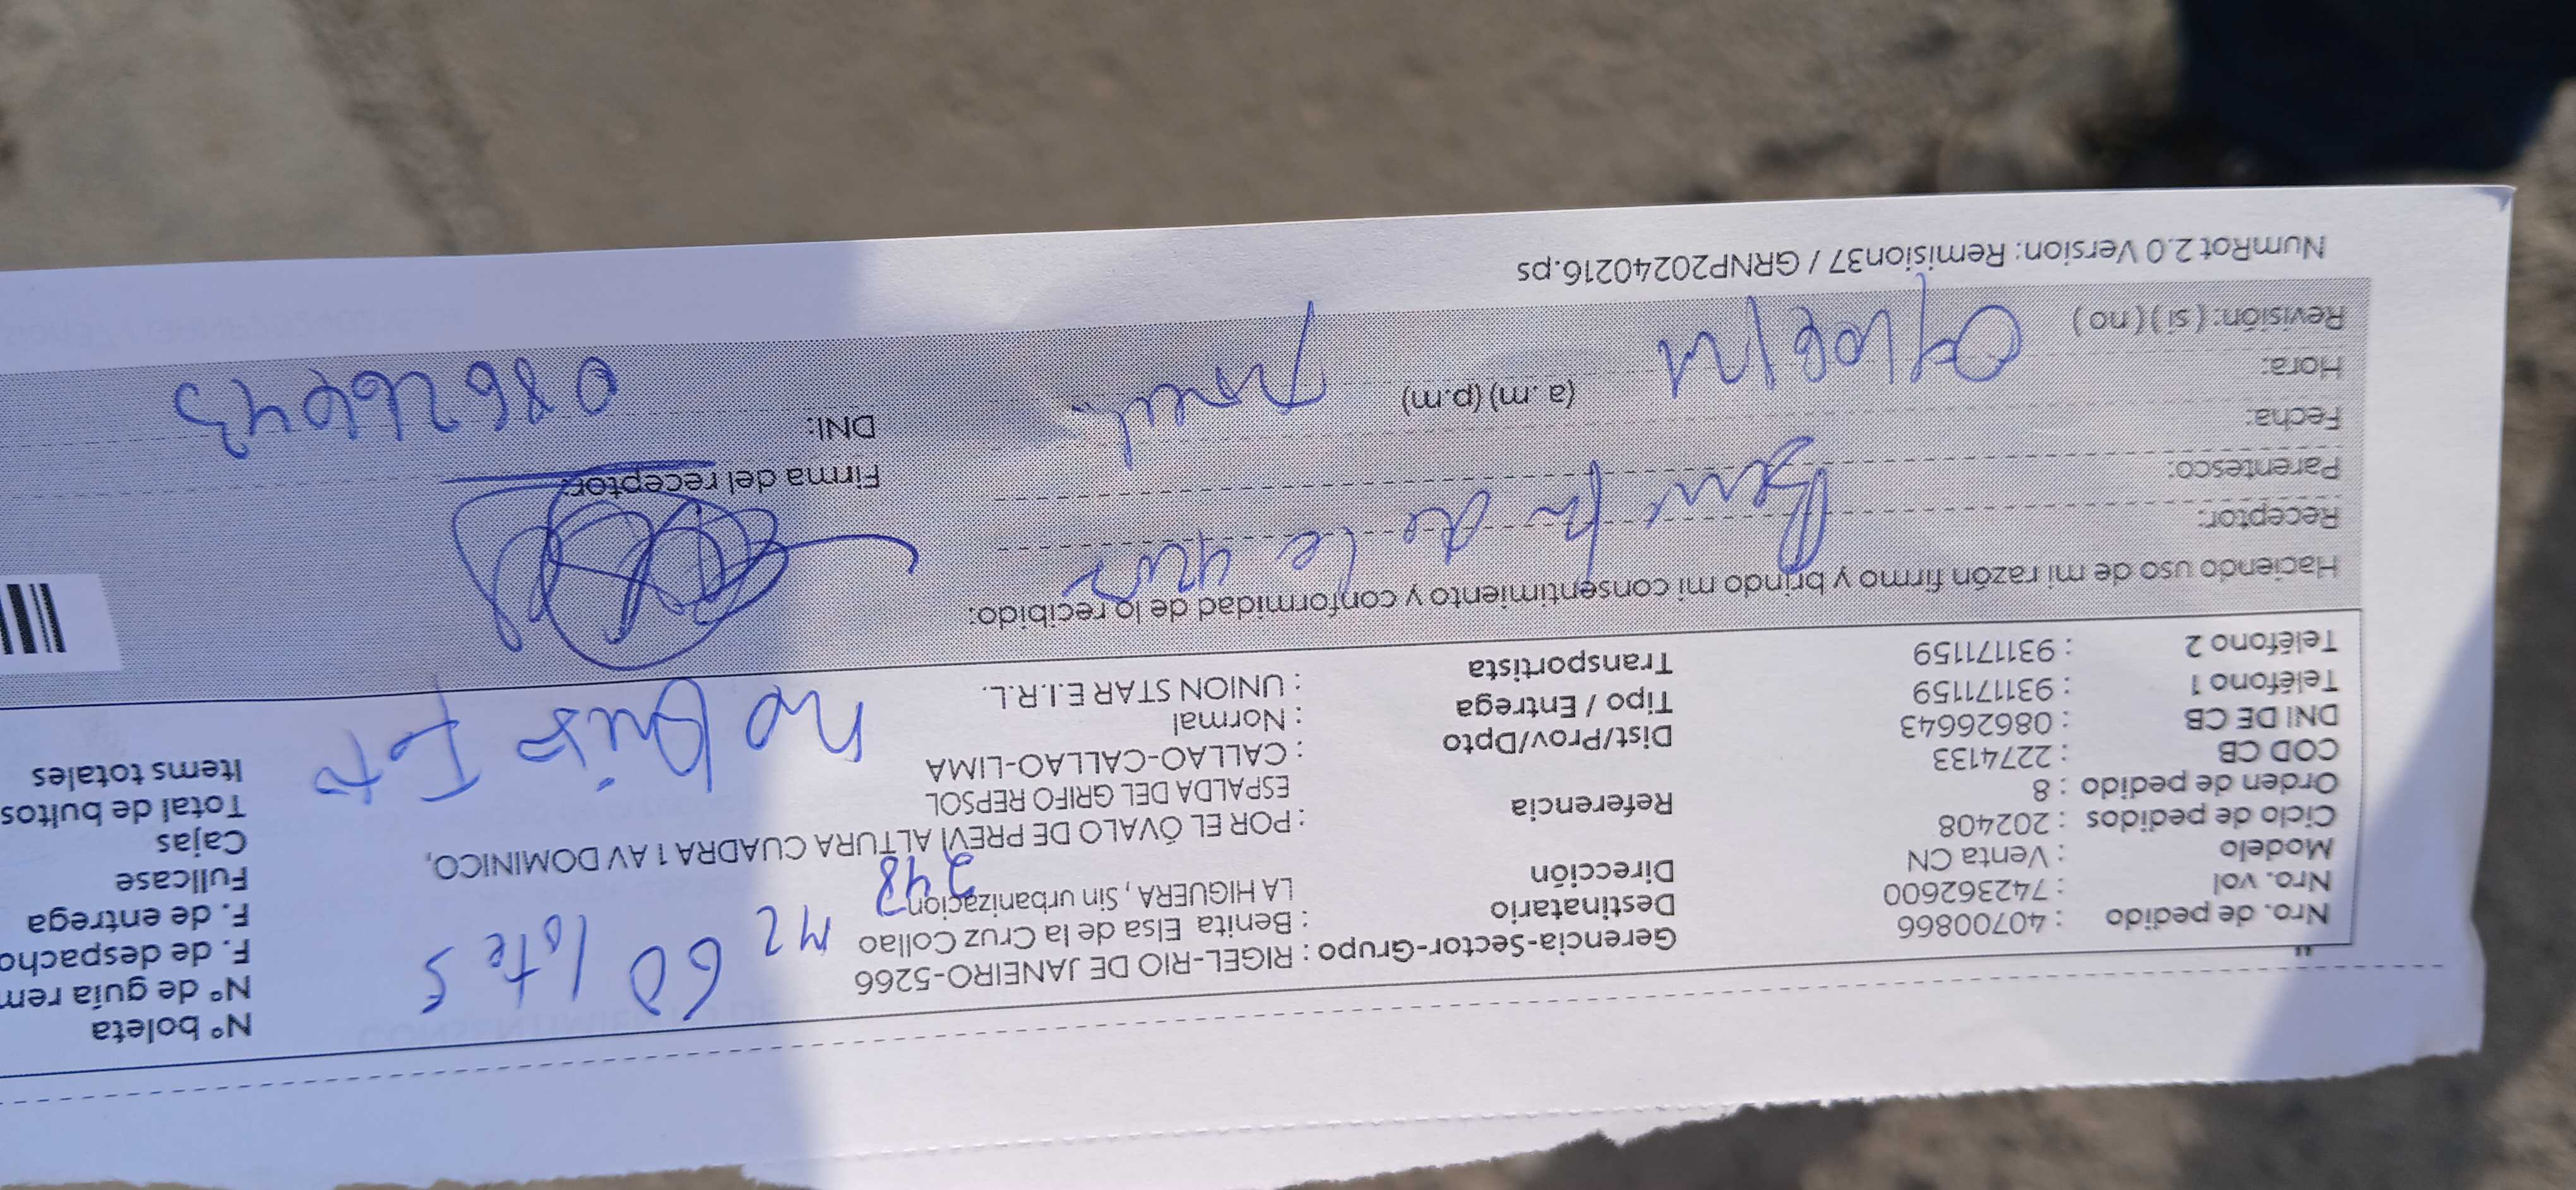 Nº boleta
Nº de guía rem
F. de despacho
F. de entrega
Fullcase
Cajas
Total de bultos
Items totales
Nro. de pedido : 40700866
Nro. vol : 742362600
Modelo : Venta CN
Ciclo de pedidos : 202408
Orden de pedido : 8
COD CB : 2274133
DNI DE CB : 08626643
Teléfono 1 : 931171159
Teléfono 2 : 931171159
Gerencia-Sector-Grupo : RIGEL-RIO DE JANEIRO-5266
Destinatario : Benita Elsa de la Cruz Collao
Mz 60 lote 5
Dirección LA HIGUERA, Sin urbanizacion
248
Referencia : POR EL ÓVALO DE PREVÍ ALTURA CUADRA 1 AV DOMINICO,
ESPALDA DEL GRIFO REPSOL
Dist/Prov/Dpto : CALLAO-CALLAO-LIMA
Tipo / Entrega : Normal
Transportista : UNION STAR E.I.R.L.
no quiso Foto
Haciendo uso de mi razón firmo y brindo mi consentimiento y conformidad de lo recibido.
Receptor: de la
Parentesco:
Fecha:
Hora: (a.m) (p.m)
Revisión: ( si ) ( no )
Firma del receptor:
DNI: 08626643
NumRot 2.0 Version: Remision37 / GRNP20240216.ps